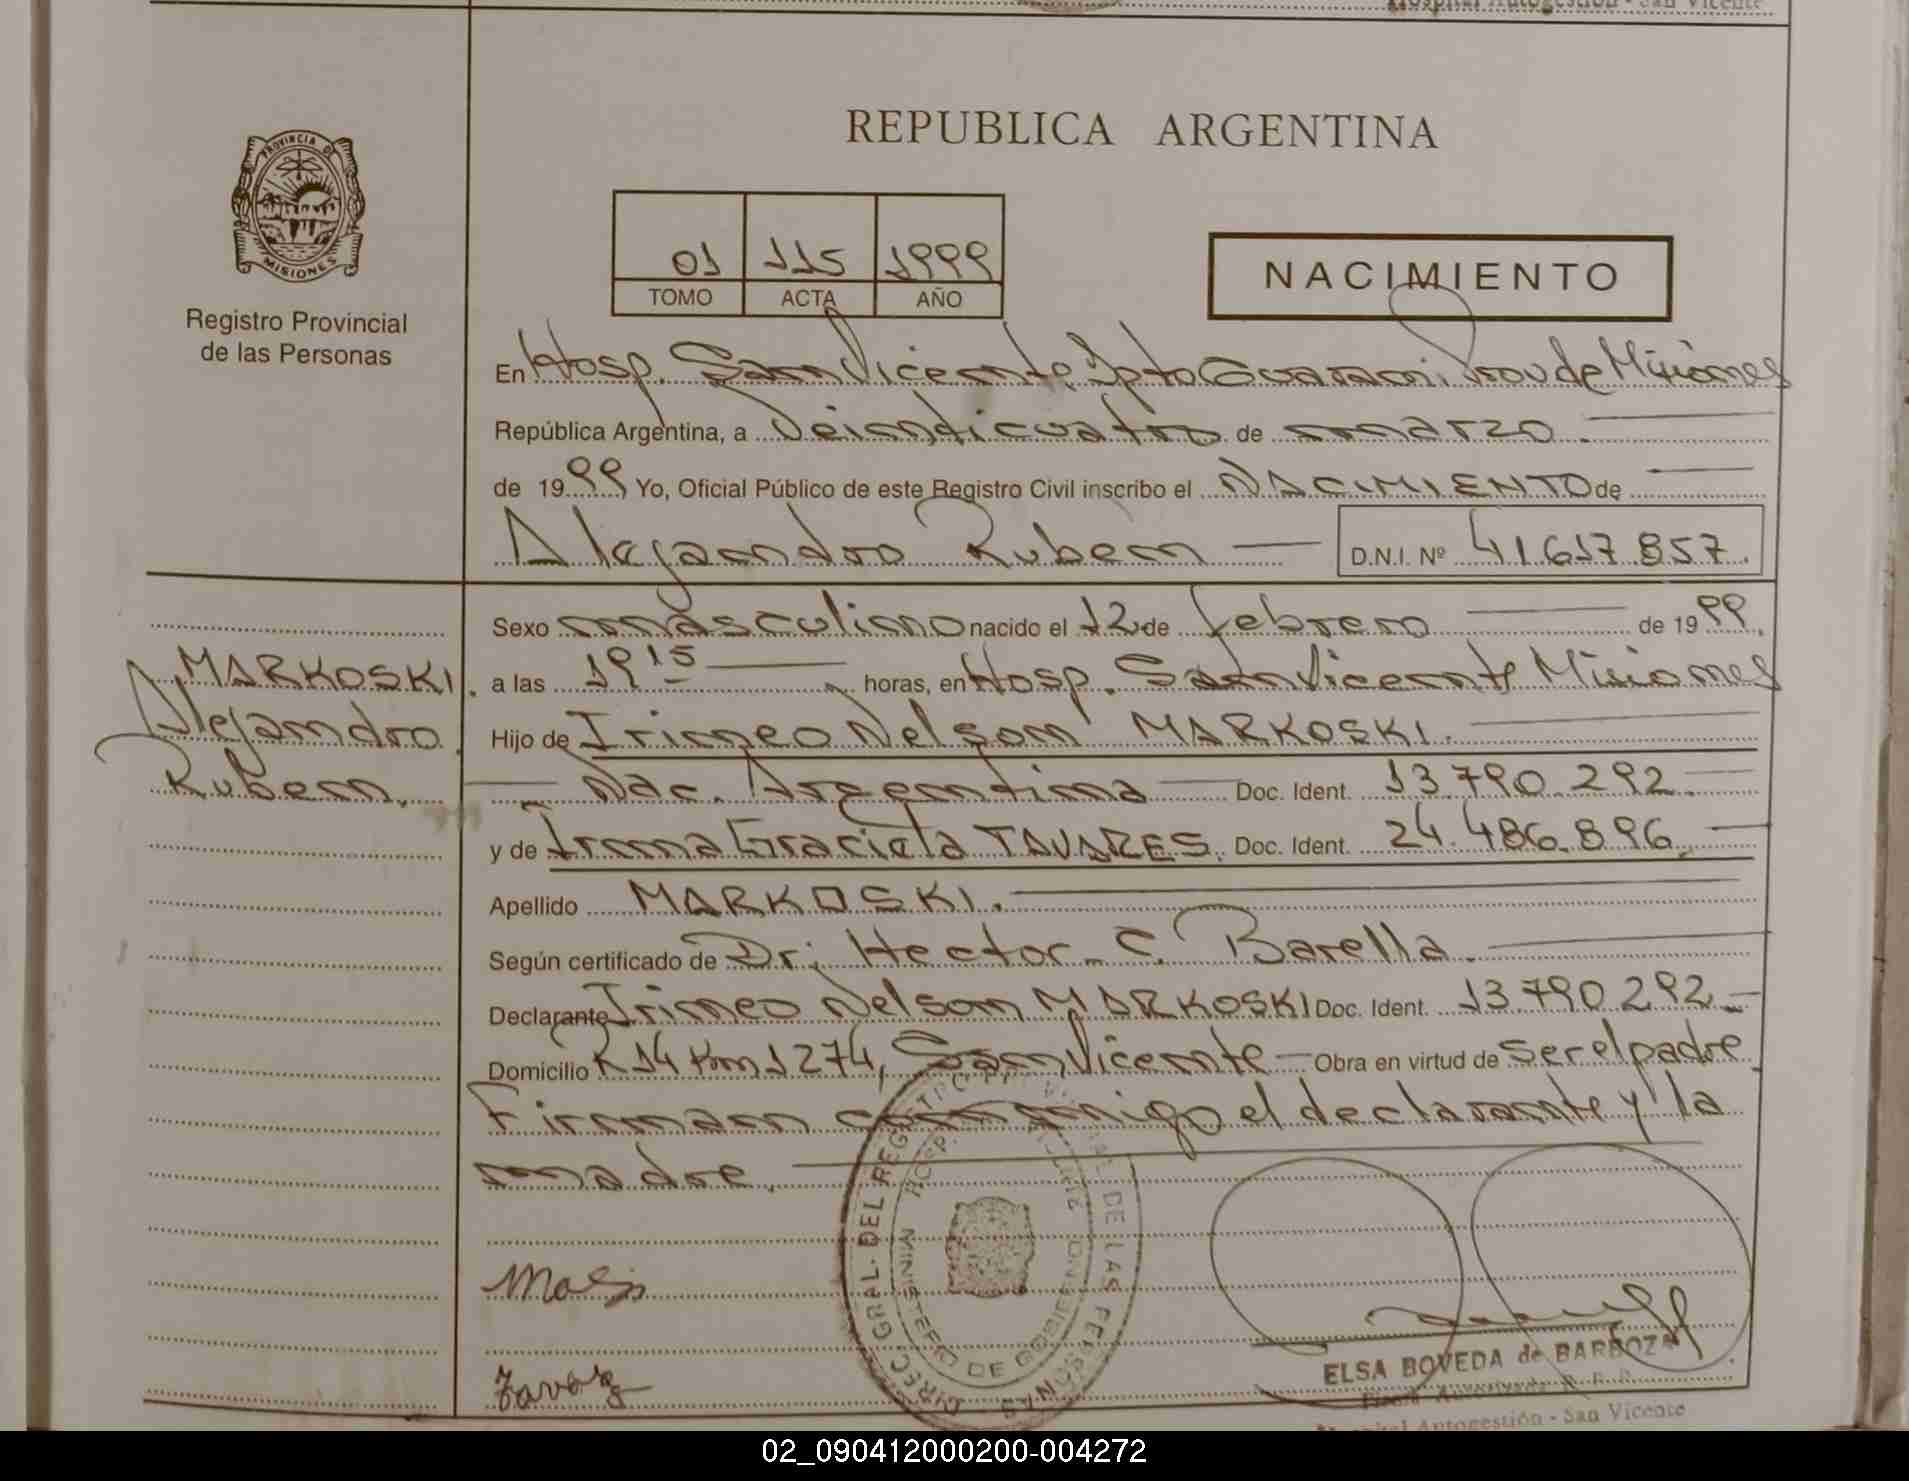 Hospital Autogestión - San Vicente
PROVINCIA DE
MISIONES
Registro Provincial
de las Personas
REPUBLICA ARGENTINA
01 115 1999
TOMO ACTA AÑO
NACIMIENTO
En Hosp. San Vicente Dpto Guarani, Prov de Misiones
República Argentina, a Veinticuatro de marzo.
de 1999 Yo, Oficial Público de este Registro Civil inscribo el NACIMIENTO de
Alejandro Ruben D.N.I. Nº 41.617.857.
Sexo masculino nacido el 12 de febrero de 1999.
MARKOSKI
Alejandro
Ruben.
a las 19 15 horas, en Hosp. San Vicente Misiones
Hijo de Irineo Nelson MARKOSKI.
Nac. Argentina Doc. Ident. 13.790.292.
y de Irma Graciela TAVARES. Doc. Ident. 24.486.896.
Apellido MARKOSKI.
Según certificado de Dr. Hector C. Barella.
Declarante Irineo Nelson MARKOSKI Doc. Ident. 13.790.292
Domicilio R 14 Km 1274, San Vicente Obra en virtud de ser el padre.
Firman conmigo el declarante y la
madre.
DIREC. GRAL. DEL REGISTRO DE LAS PERSONAS
HOSP.
MINISTERIO DE GOBIERNO
ELSA BOVEDA de BARBOZA
Hospital Autogestión - San Vicente
02_090412000200-004272